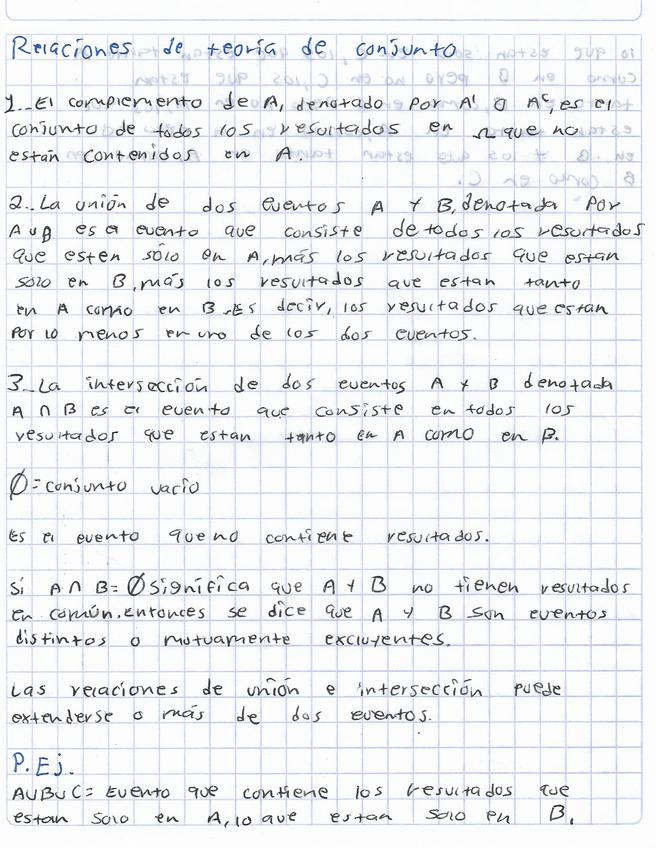 Relaciones de teoría de conjunto
1._ El complemento de A, denotado por A' o Aᶜ, es el
conjunto de todos los resultados en Ω que no
están contenidos en A.
2._ La unión de dos eventos A y B, denotada por
A∪B es el evento que consiste de todos los resultados
que esten sólo en A, más los resultados que estan
solo en B, más los resultados que estan tanto
en A como en B. Es decir, los resultados que estan
por lo menos en uno de los dos eventos.
3._ La intersección de dos eventos A y B denotada
A ∩ B es el evento que consiste en todos los
resultados que estan tanto en A como en B.
Ø = conjunto vacio
Es el evento que no contiene resultados.
Si A ∩ B = Ø significa que A y B no tienen resultados
en común. entonces se dice que A y B son eventos
distintos o mutuamente excluyentes.
Las relaciones de unión e intersección puede
extenderse o más de dos eventos.
P. Ej.
A∪B∪C = Evento que contiene los resultados que
estan solo en A, lo que estan solo en B,